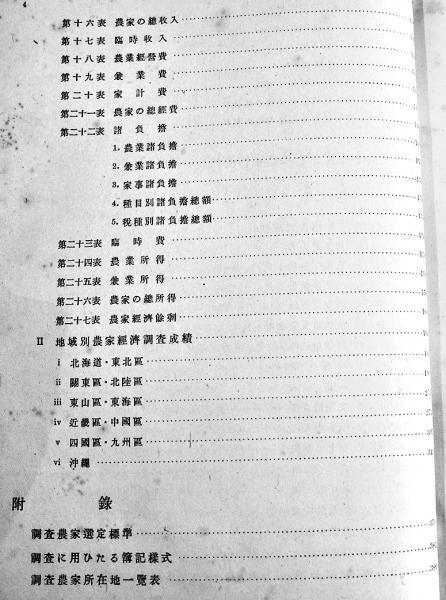 4
第十六表 農家の總收入
第十七表 臨時收入
第十八表 農業經營費
第十九表 兼業費
第二十表 家計費
第二十一表 農家の總經費
第二十二表 諸負擔
1. 農業諸負擔
2. 兼業諸負擔
3. 家事諸負擔
4. 種目別諸負擔總額
5. 稅種別諸負擔總額
第二十三表 臨時費
第二十四表 農業所得
第二十五表 兼業所得
第二十六表 農家の總所得
第二十七表 農家經濟餘剩
II 地域別農家經濟調査成績
i 北海道・東北區
ii 關東區・北陸區
iii 東山區・東海區
iv 近畿區・中國區
v 四國區・九州區
vi 沖繩
附錄
調査農家選定標準
調査に用ひたる簿記樣式
調査農家所在地一覽表